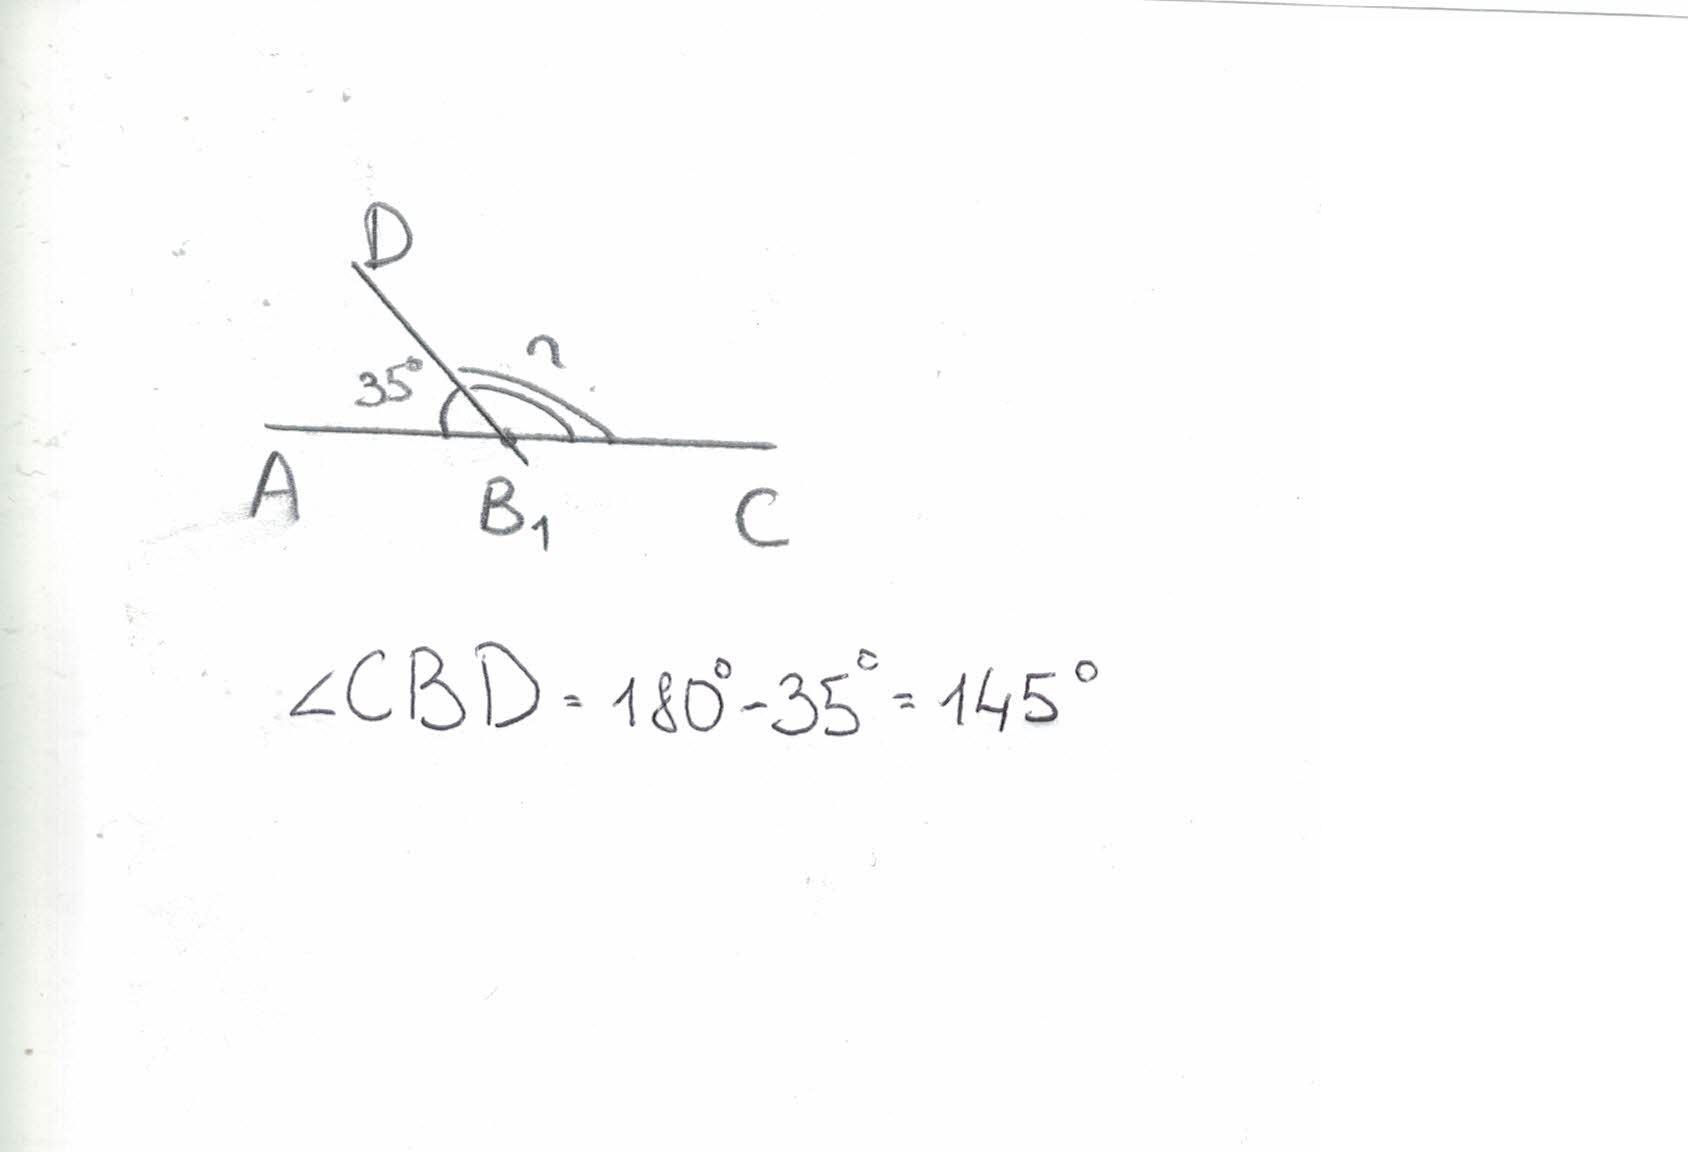 D
35° ?
A B₁ C
∠CBD = 180° - 35° = 145°